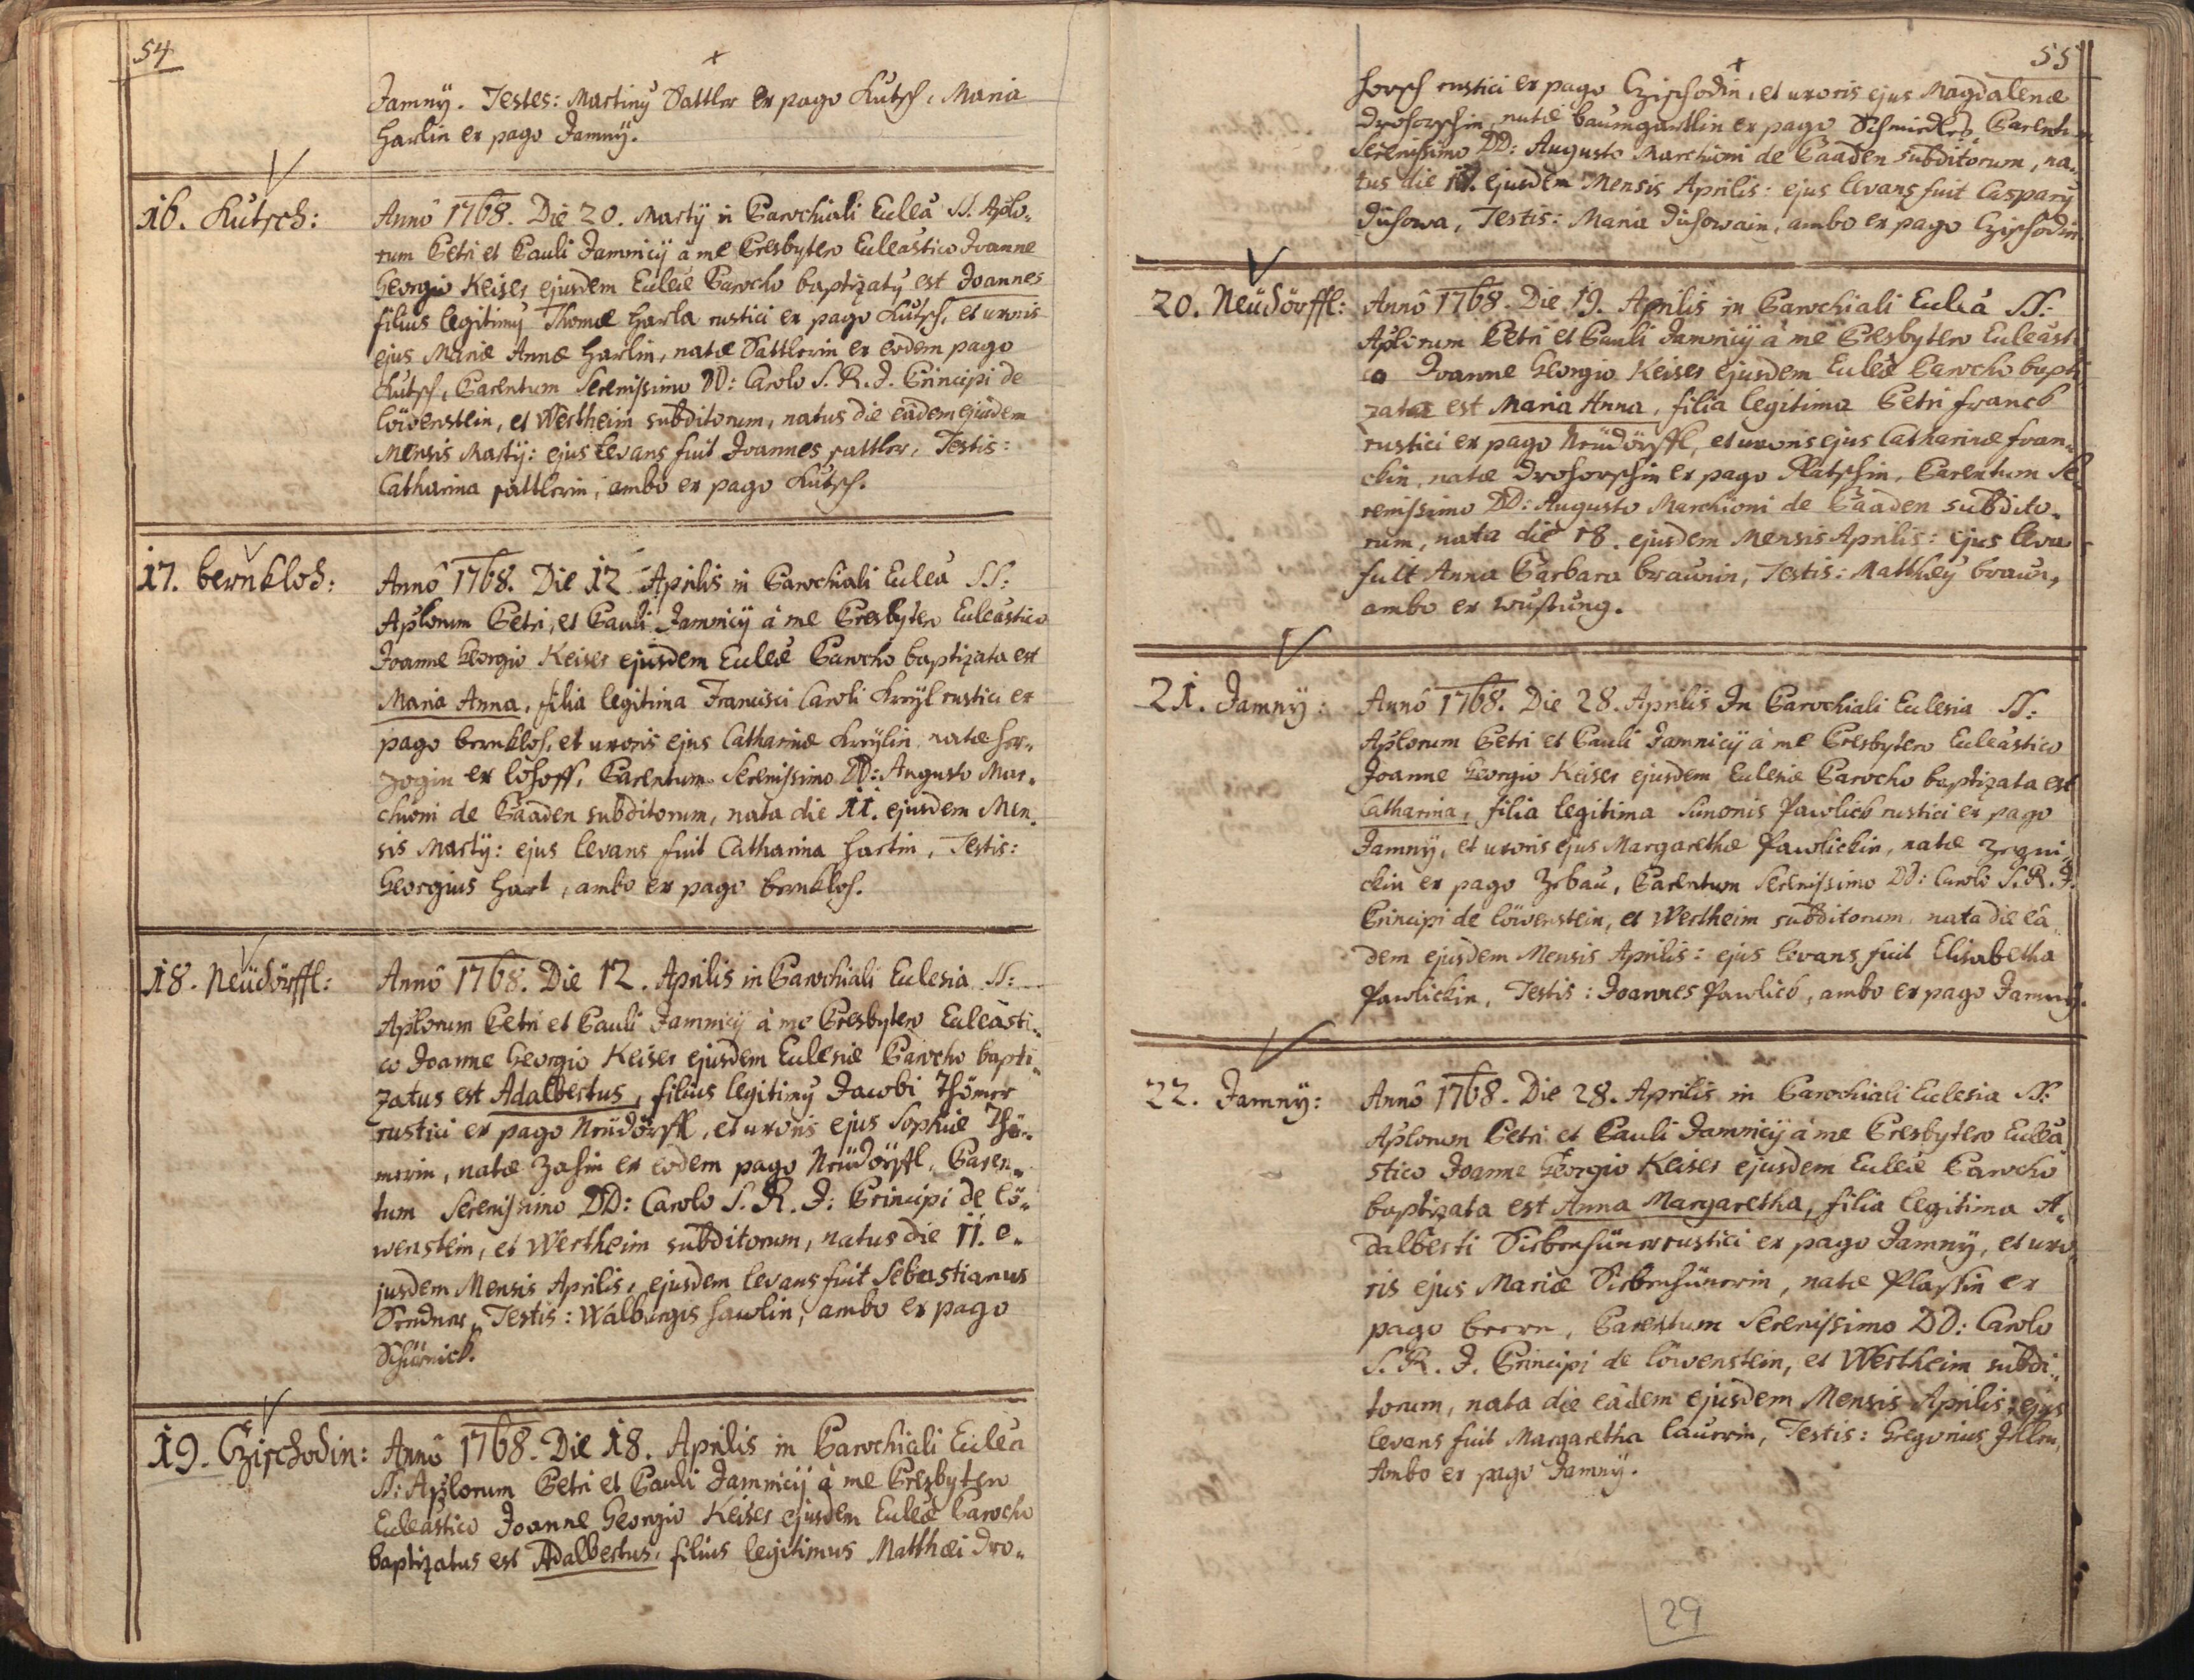 54
Jamnÿ. Testes: Martinÿ Sattler ex pago Kutsch, Maria
Harlin ex pago Jamnÿ.
16. Kutsch:
Annô 1768. Die 20. Martÿ in Parochiali Ecclêa SS. Aplo-
rum Petri et Pauli Jamnicÿ à me Presbytero Eccleâstico Joanne
Georgio Keiser ejusdem Ecclêae Parocho baptizatÿ est Joannes
filius legitimÿ Thomae Harla rustici ex pago Kutsch, et uxoris
ejus Mariae Annae Harlin, natae Sattlerin ex eodem pago
Kutsch, Parentum Serenissimo DD: Carolo S. R. J. Principi de
Löwenstein, et Wertheim subditorum, natus die eâdem ejusdem
Mensis Martÿ: ejus levans fuit Joannes sattler, Testis:
Catharina sattlerin, ambo ex pago Kutsch.
17. bernklos:
Annô 1768. Die 12 Aprilis in Parochiali Ecclêa SS:
Aplorum Petri, et Pauli Jamnicÿ à me Presbytero Eccleâstico
Joanne Georgio Keiser ejusdem Ecclêae Parocho baptizata est
Maria Anna, filia legitima Francisci Caroli Kreÿl rustici ex
pago bernklos, et uxoris ejus Catharinae Kreÿlin natae Her-
zogin ex Lohoff, Parentum Serenissimo DD: Augusto Mar-
chioni de Baaden subditorum, nata die 11. ejusdem Men-
sis Martÿ: ejus levans fuit Catharina Hartin, Testis:
Georgius Hart, ambo ex pago bernklos.
18. Neüdörffl:
Annô 1768. Die 12. Aprilis in Parochiali Eclesia SS:
Aplorum Petri et Pauli Jamnicÿ à me Presbytero Eccleâsti-
co Joanne Georgio Keiser ejusdem Eclesiae Parocho bapti-
zatus est Adalbertus, filius legitimÿ Jacobi Thömer
rustici ex pago Neüdörffl, et uxoris ejus Sophiae Thö-
merin, natae Zahin ex eodem pago Neüdörffl, Paren-
tum Serenissimo DD: Carolo S. R. J: Principi de Lö-
wenstein, et Wertheim subditorum, natus die 11. e-
jusdem Mensis Aprilis, ejusdem levans fuit Sebastianus
Sendner, Testis: Walburgis Hawlin, ambo ex pago
Schürnick.
19. Czischodin:
Annô 1768. Die 18. Aprilis in Parochiali Ecclêa
SS: Aplorum Petri et Pauli Jamnicÿ à me Presbytero
Eccleâstico Joanne Georgio Keiser ejusdem Ecclêae Parocho
baptizatus est Adalbertus, filius legitimus Matthaei Dro-
55
horsch rustici ex pago Czischodin, et uxoris ejus Magdalenae
Drohorschin, natae baumgartlin ex pago Parentum
Serenissimo DD: Augusto Marchioni de Baaden subditorum, na-
tus die 17. ejusdem Mensis Aprilis: ejus levans fuit Casparÿ
Duhowa, Testis: Maria Duhowain, ambo ex pago Czischodin
20. Neüdörffl:
Annô 1768. Die 19. Aprilis in Parochiali Ecclêa SS:
Aplorum Petri et Pauli Jamnicÿ à me Presbytero Eccleâsti
co Joanne Georgio Keiser ejusdem Ecclêae Parocho bapti
zata est Maria Anna, filia legitima Petri Franck
rustici ex pago Neüdörffl, et uxoris ejus Catharinae Fran-
ckin, natae Drohorschin ex pago Platschin, Parentum Se-
renissimo DD: Augusto Marchioni de Baaden subdito-
rum, nata die 18. ejusdem Mensis Aprilis: ejus leva
fuit Anna Barbara braunin, Testis: Matthÿ braun,
ambo ex wustung.
21. Jamnÿ:
Annô 1768. Die 28. Aprilis In Parochiali Eclesia SS:
Aplorum Petri et Pauli Jamnicÿ à me Presbytero Eccleâstico
Joanne Georgio Keiser ejusdem Eclesiae Parocho baptizata est
Catharina, filia legitima Simonis Pawlick rustici ex pago
Jamnÿ, et uxoris ejus Margarethae Pawlickin, natae
ckin ex pago Zebau, Parentum Serenissimo DD: Carolo S. R. J.
Principi de Löwenstein, et Wertheim subditorum, nata die eâ-
dem ejusdem Mensis Aprilis: ejus levans fuit Elisabetha
Pawlickin, Testis: Joannes Pawlick, ambo ex pago Jamnÿ.
22. Jamnÿ:
Annô 1768. Die 28. Aprilis in Parochiali Eclesia SS:
Aplorum Petri et Pauli Jamnicÿ à me Presbytero Ecclêa
stico Joanne Georgio Keiser ejusdem Ecclêae Parocho
baptizata est Anna Margaretha, filia legitima A-
dalberti Siebenhüner rustici ex pago Jamnÿ, et uxo
ris ejus Mariae Siebenhünerin, natae Plassin ex
pago beern, Parentum Serenissimo DD: Carolo
S. R. J. Principi de Löwenstein, et Wertheim subdi-
torum, nata die eâdem ejusdem Mensis Aprilis: ejus
levans fuit Margaretha Lauerin, Testis: Gregorius
Ambo ex pago Jamnÿ.
29